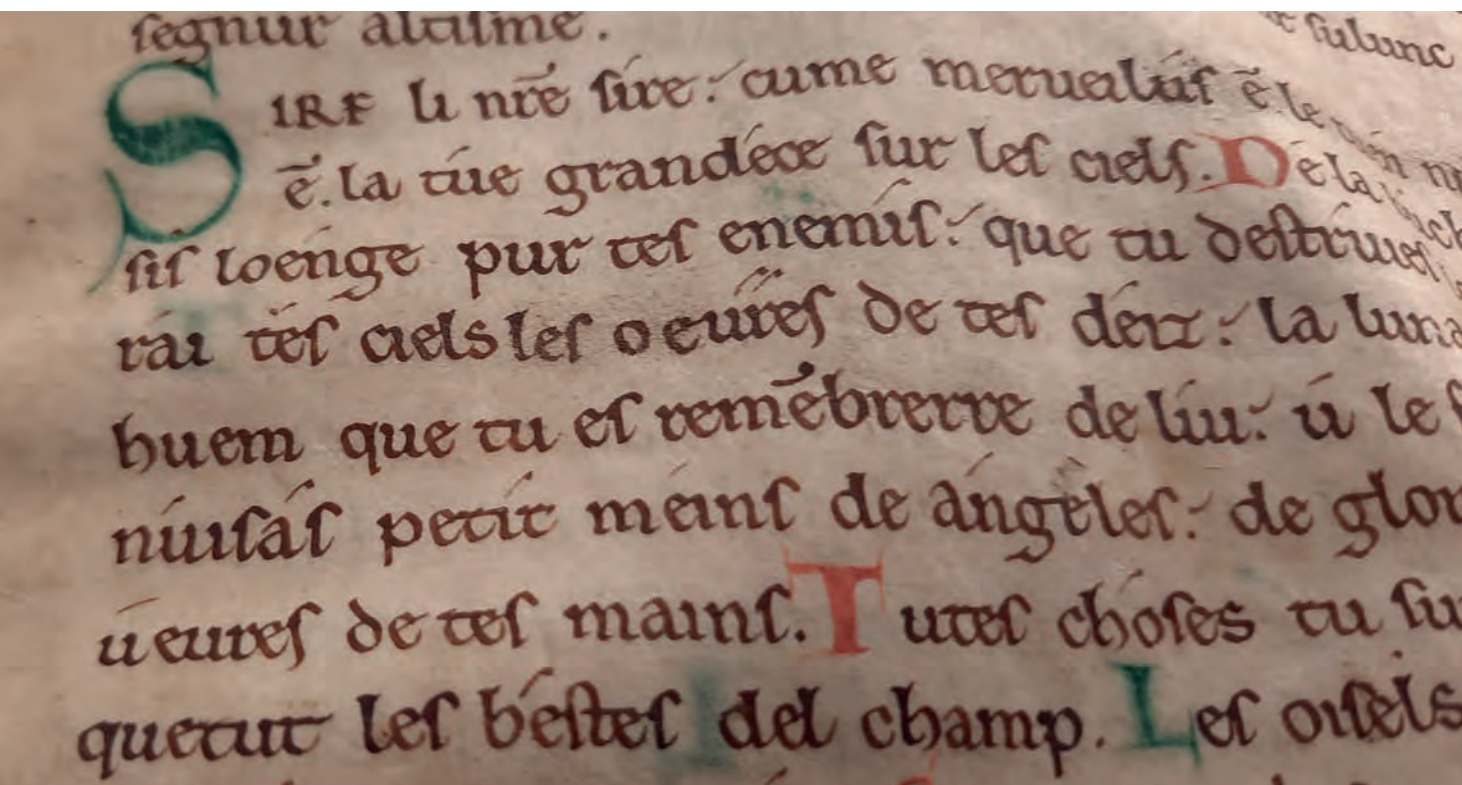 segnur altisme.
SIRE li nr̄e sire: cume merueilus ē. le
ē. la tue grandece sur les ciels. De la
sis loenge pur tes enemis: que tu destruies
rai tes ciels les oeures de tes deiz: la luna
huem que tu es remēbrerre de liu: u le
nuisas petit meins de angeles: de glor
ueures de tes mains. Tutes choses tu su
quetut les bestes del champ. Les oisels